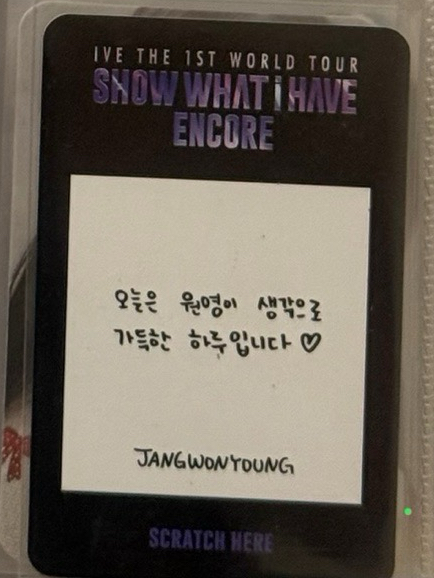 IVE THE 1ST WORLD TOUR
SHOW WHAT i HAVE
ENCORE
오늘은 원영이 생각으로
가득한 하루입니다 ♡
JANGWONYOUNG
SCRATCH HERE